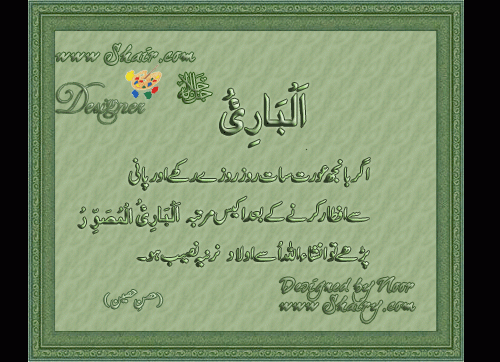 www Shair.com
Designer
جل جلالہ
اَلْبَارِئُ
اگر بانجھ عورت سات روز روزے رکھے اور پانی
سے افطار کرنے کے بعد اکیس مرتبہ اَلْبَارِئُ الْمُصَوِّرُ
پڑھے تو انشاء اللہ اُسے اولاد نرینہ نصیب ہو۔
(حصن حصین)
Designed by Noor
www Shairy.com